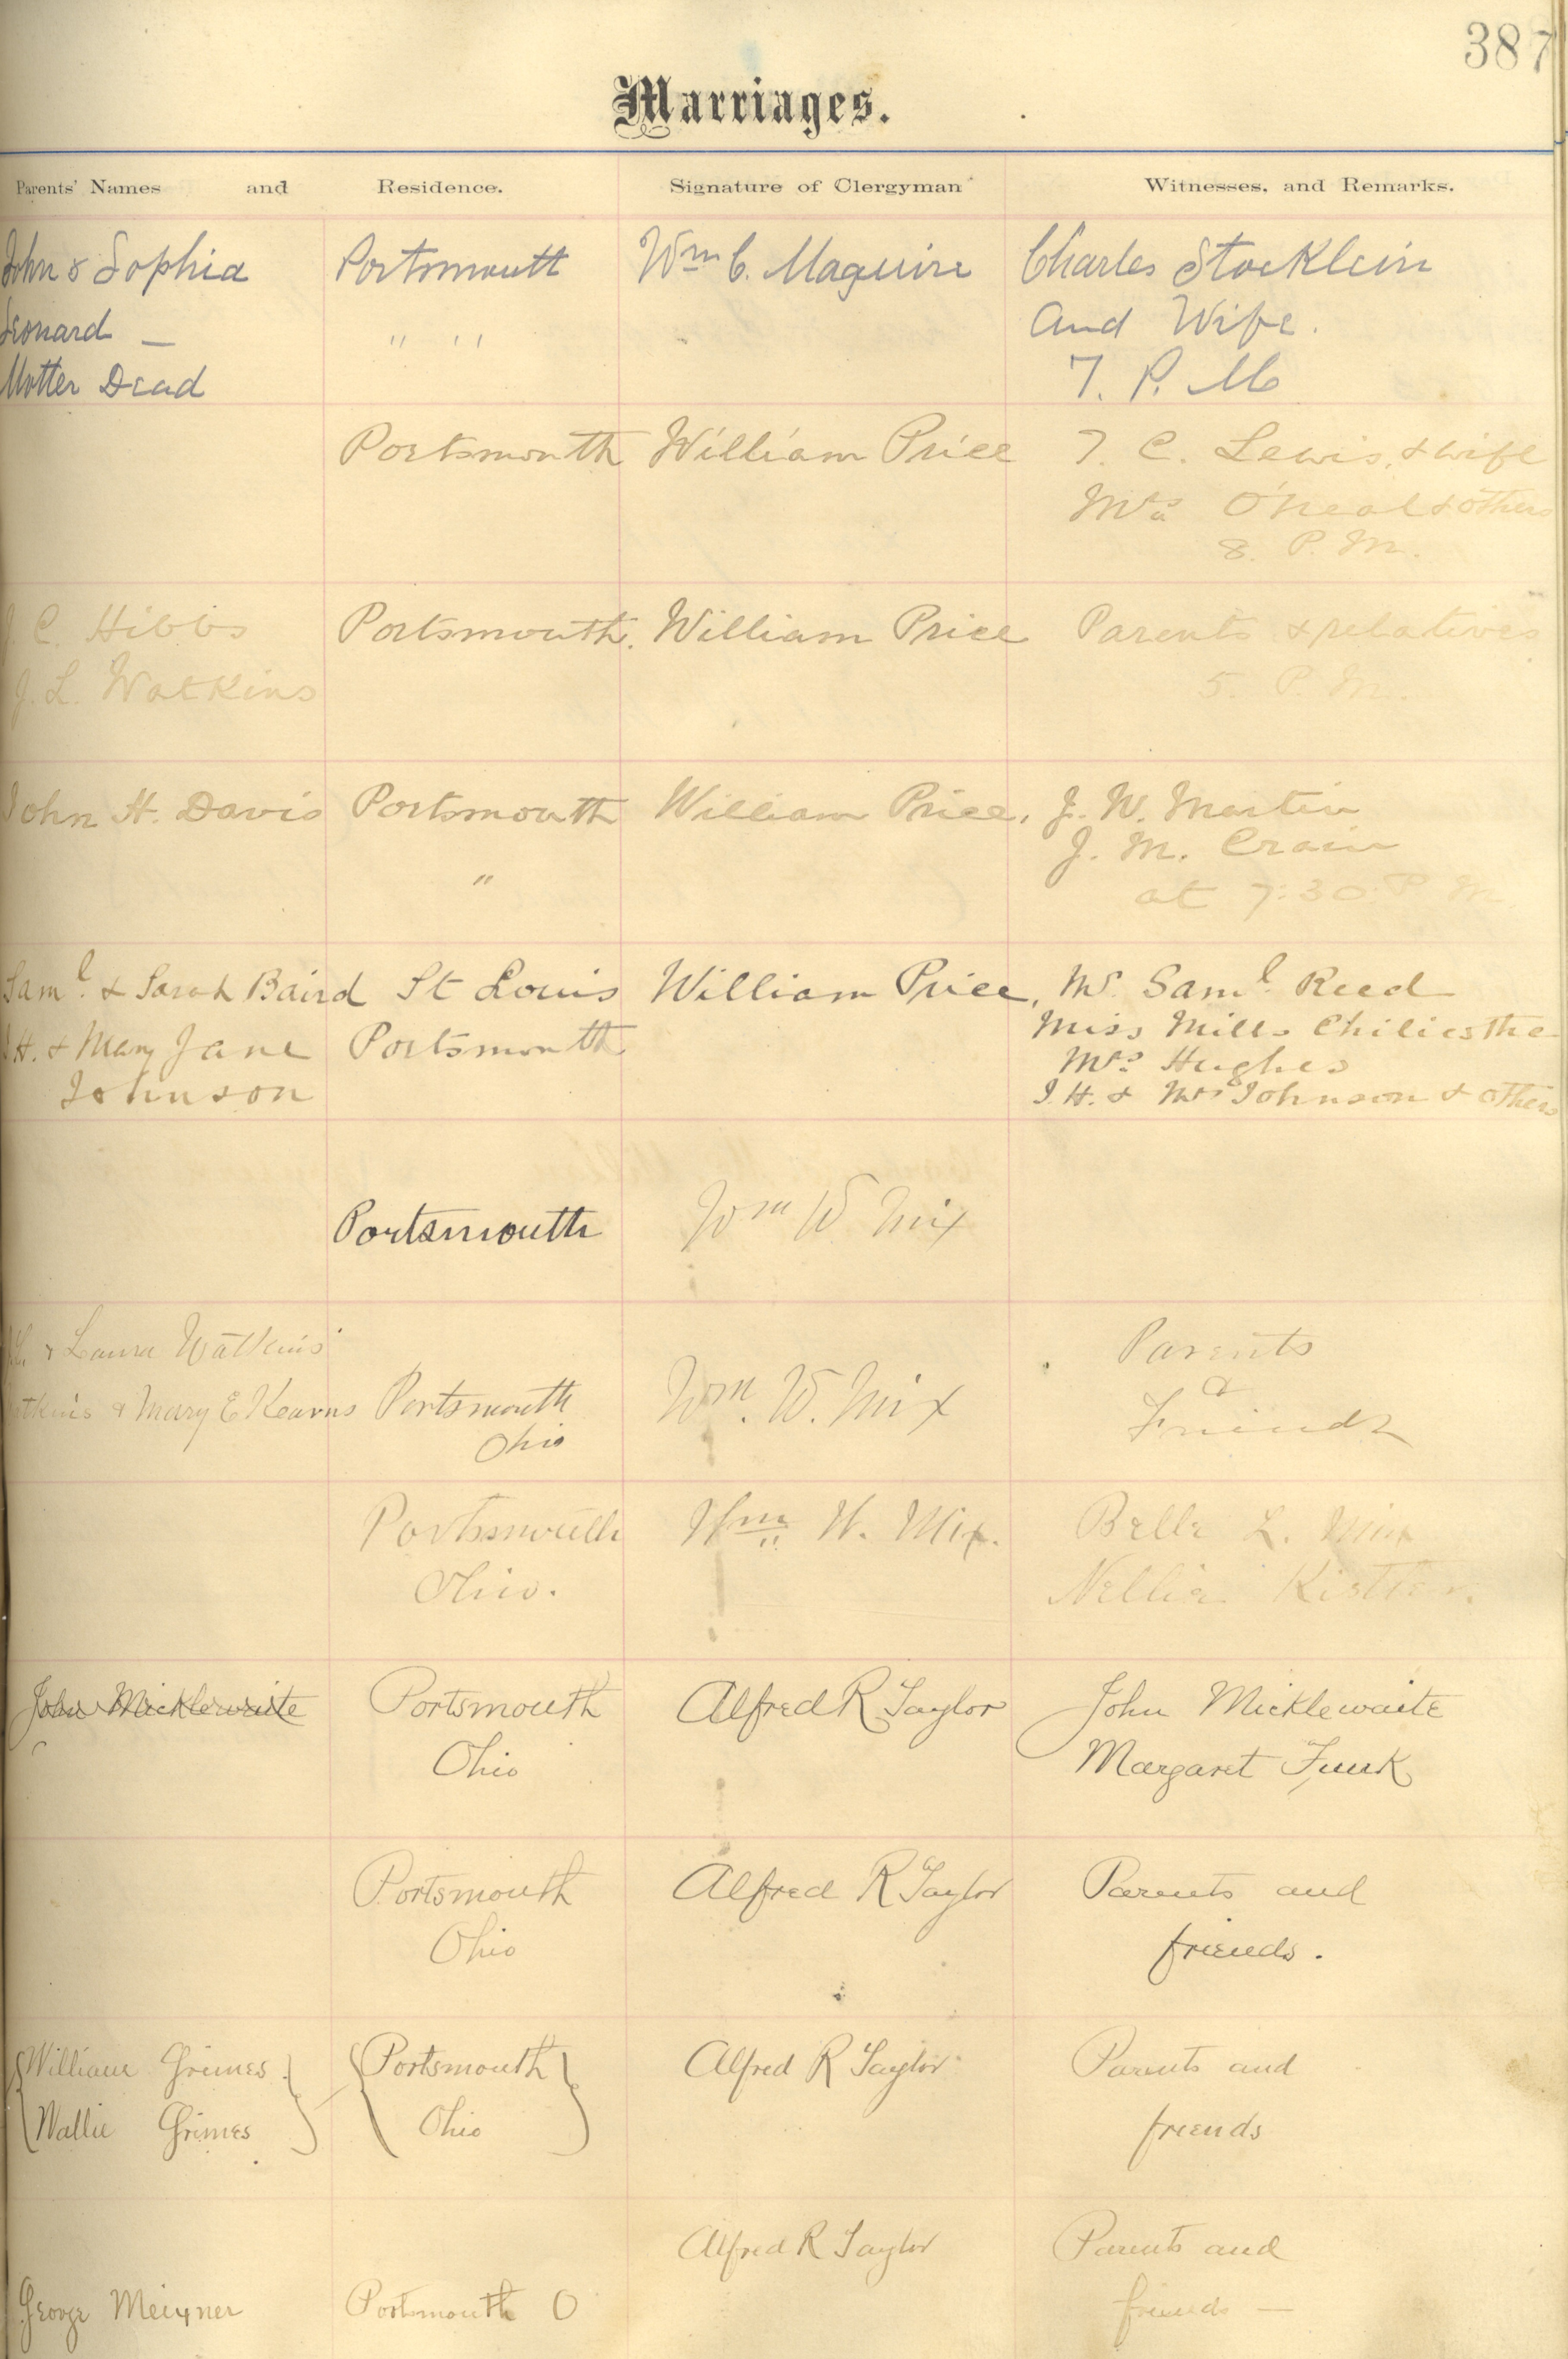 387
Marriages.
Parents' Names and Residence. Signature of Clergyman Witnesses, and Remarks.
John & Sophia Portsmouth Wm C. Maguire Charles Stocklein
Leonard — " " And Wife.
Motter Dead 7. P. M
Portsmouth William Price T. C. Lewis, & wife
Mrs O'Neal & others
8. P. M.
J. C. Hibbs Portsmouth. William Price Parents & relatives
J. L. Watkins 5. P. M.
John H. Davis Portsmouth William Price, J. W. Martin
J. M. Crain
" at 7:30 P. M.
Saml. & Sarah Baird St Louis William Price, Mr. Saml. Reed
I. H. & Mary Jane Portsmouth Miss Mills Chilicsthe
Johnson Mrs Hughes
I. H. & Mrs Johnson & others
Portsmouth Wm W Mix
& Laura Watkins Parents
tkins & Mary E Kearns Portsmouth Wm. W. Mix &
Ohio Friends
Portsmouth Wm W. Mix. Belle L. Mix
Ohio. Nellie Kistler.
John Micklewaite Portsmouth Alfred R Taylor John Micklewaite
Ohio Margaret Funk
Portsmouth Alfred R Taylor Parents and
Ohio friends.
William Grimes Portsmouth Alfred R Taylor Parents and
Wallie Grimes Ohio friends
Alfred R Taylor Parents and
George Meixner Portsmouth O friends —